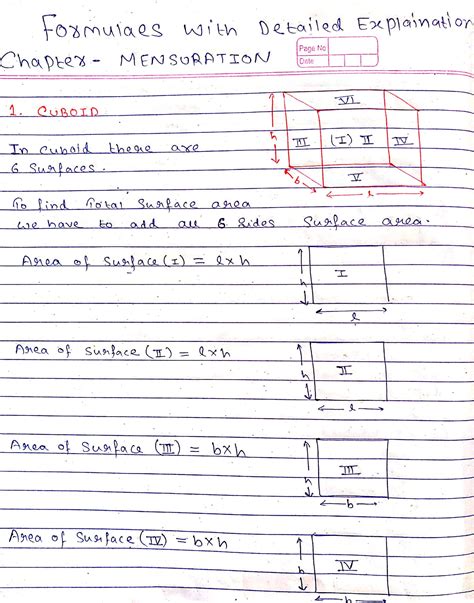 Formulaes with Detailed Explaination
Chapter - MENSURATION
Page No
Date
1. CUBOID
VI
h III (I) II IV
In cuboid there are
6 surfaces.
b V l
To find Total Surface area
we have to add all 6 sides Surface area.
Area of Surface (I) = l×h
h I
l
Area of Surface (II) = l×h
h II
l
Area of Surface (III) = b×h
h III
b
Area of Surface (IV) = b×h
h IV